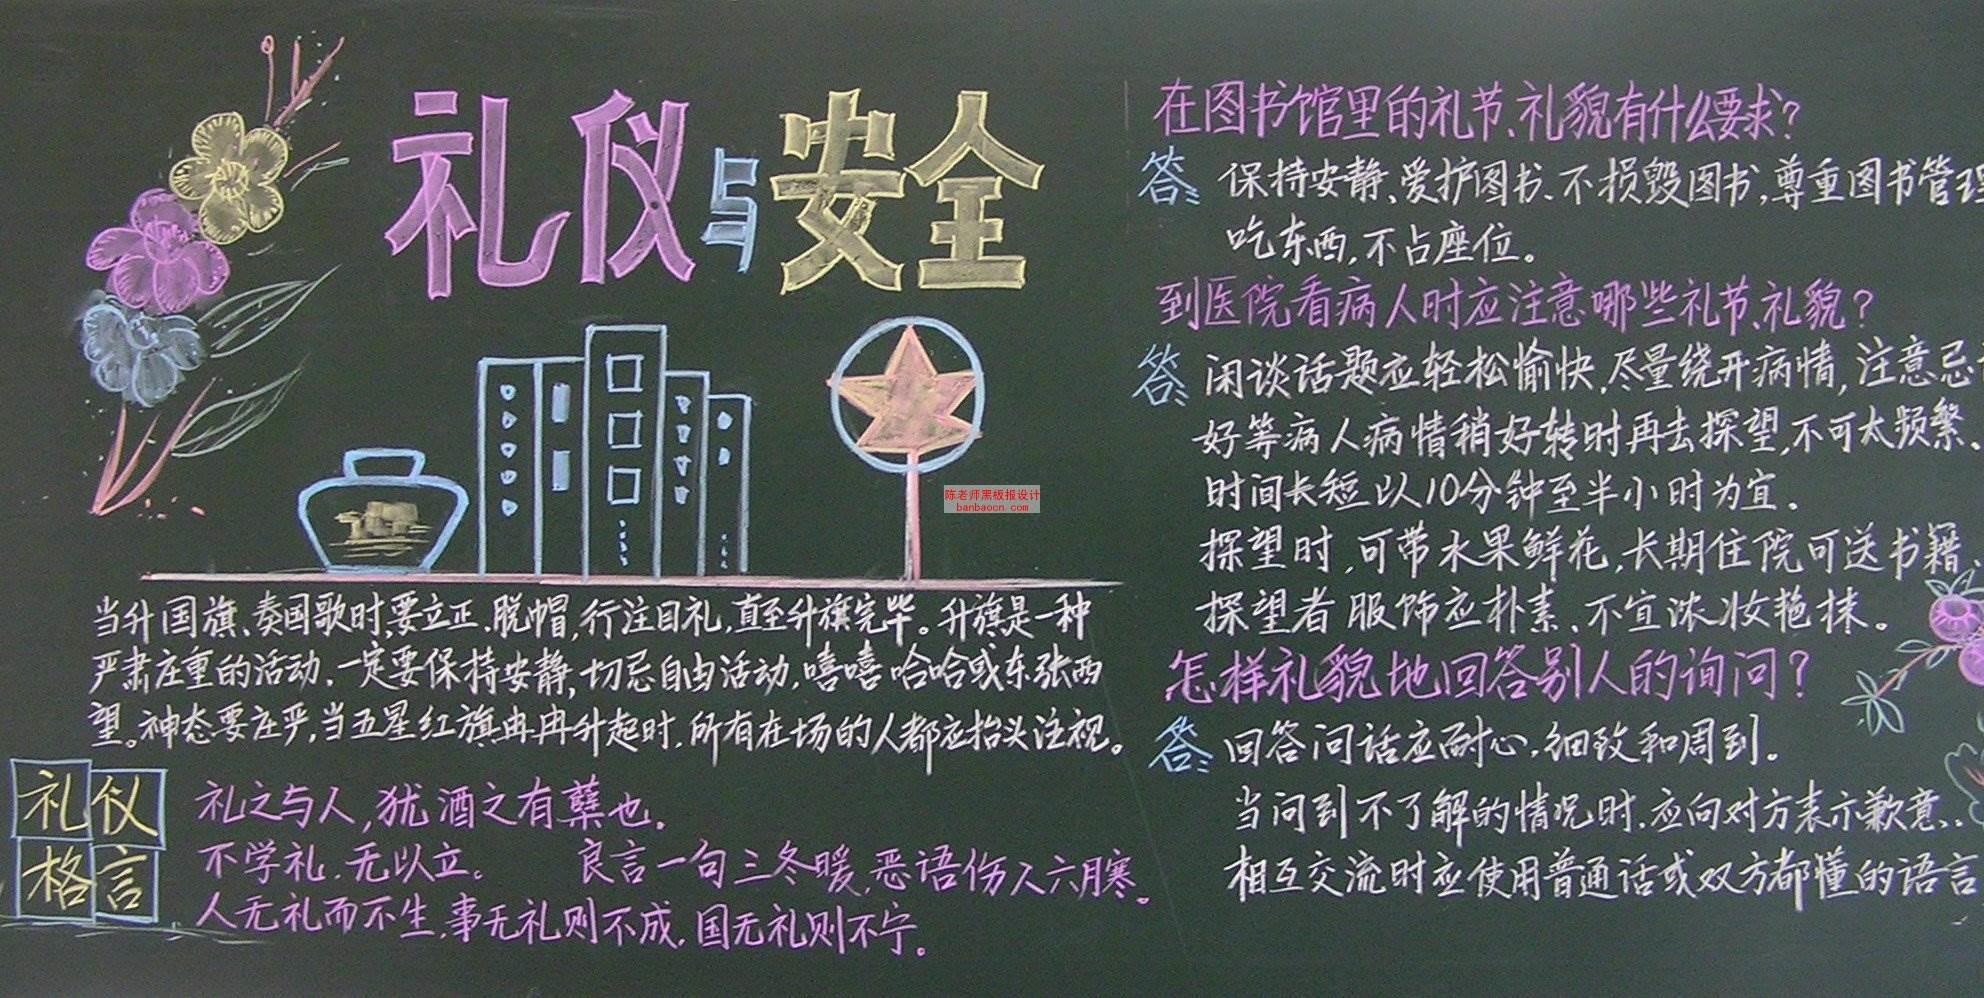 礼仪与安全
陈老师黑板报设计
banbaocn.com
当升国旗、奏国歌时,要立正、脱帽,行注目礼,直至升旗完毕。升旗是一种
严肃庄重的活动,一定要保持安静,切忌自由活动,嘻嘻哈哈或东张西
望。神态要庄严,当五星红旗冉冉升起时,所有在场的人都应抬头注视。
礼仪
格言
礼之与人,犹酒之有蘖也。
不学礼,无以立。 良言一句三冬暖,恶语伤人六月寒。
人无礼而不生,事无礼则不成,国无礼则不宁。
在图书馆里的礼节、礼貌有什么要求?
答: 保持安静、爱护图书、不损毁图书,尊重图书管理
吃东西,不占座位。
到医院看病人时应注意哪些礼节、礼貌?
答: 闲谈话题应轻松愉快,尽量绕开病情,注意忌
好等病人病情稍好转时再去探望,不可太频繁、
时间长短以10分钟至半小时为宜。
探望时,可带水果鲜花,长期住院可送书籍、
探望者服饰应朴素、不宜浓妆艳抹。
怎样礼貌地回答别人的询问?
答: 回答问话应耐心,细致和周到。
当问到不了解的情况时,应向对方表示歉意、
相互交流时应使用普通话或双方都懂的语言